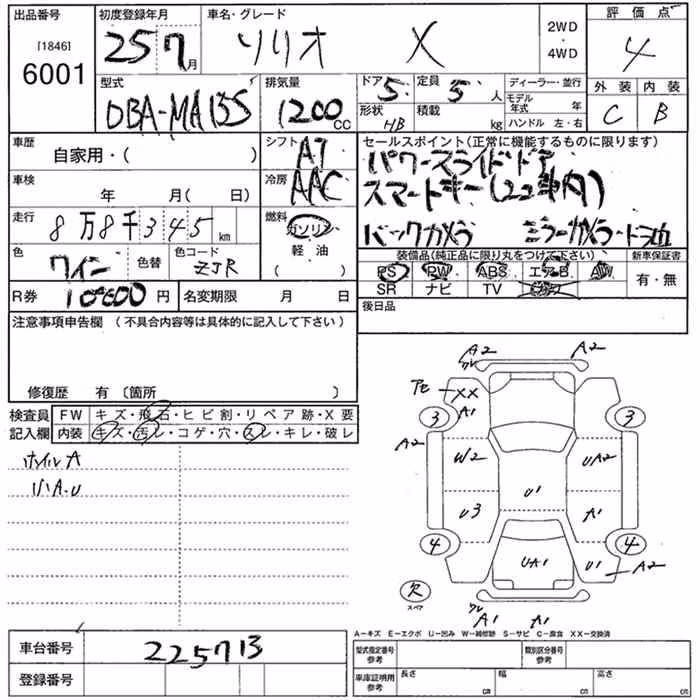 出品番号 初度登録年月 車名・グレード 2WD・4WD 評価点
[1846]
6001
25 7月 ソリオ X 4
型式 排気量 ドア 定員 ディーラー・並行 外装 内装
DBA-MA15S 1200CC 5 5人 モデル年式 年 C B
形状 積載 ハンドル 左・右
HB kg
車歴 シフト セールスポイント(正常に機能するものに限ります)
自家用・( ) AT パワースライドドア
車検 冷房 スマートキー(22車内)
年 月( 日) AAC
走行 燃料 バックカメラ ミラーカメラ・ドラ
8万8千345km ガソリン
軽油
( )
色 色替 色コード 装備品(純正品に限り丸をつけて下さい) 新車保証書
ワイン ZJR PS PW ABS エアB AW 有・無
R券 10600円 名変期限 月 日 SR ナビ TV
注意事項申告欄 (不具合内容等は具体的に記入して下さい) 後日品
修復歴 有〔箇所 〕
検査員 FW キズ・飛石・ヒビ割・リペア跡・X要
記入欄 内装 キズ・汚レ・コゲ・穴・スレ・キレ・破レ
ホイルA
小A.U
クレ A2 A2
アセ XX
A1
3 3
A2 W2 UA2
U1
U3 A1
4 4
UA1 U1 A2
欠
スペア
クレ A1 A1
A-キズ E-エクボ U-凹み W-補修跡 S-サビ C-腐食 XX-交換済
車台番号 225713 型式指定番号 参考 類別区分番号 参考
登録番号 車庫証明用 参考 長さ cm 幅 cm 高さ cm